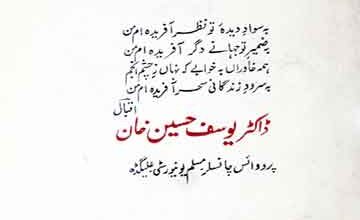 به سوادِ دیدۂ تو نظر آفریده ام من
به ضمیرِ تو جہانے دگر آفریده ام من
ہمہ خاوراں بہ خوابے کہ نہاں ز چشمِ انجم
بہ سرودِ زندگانی سحر آفریده ام من
اقبال
ڈاکٹر یوسف حسین خان
پرو وائس چانسلر مسلم یونیورسٹی علیگڈھ